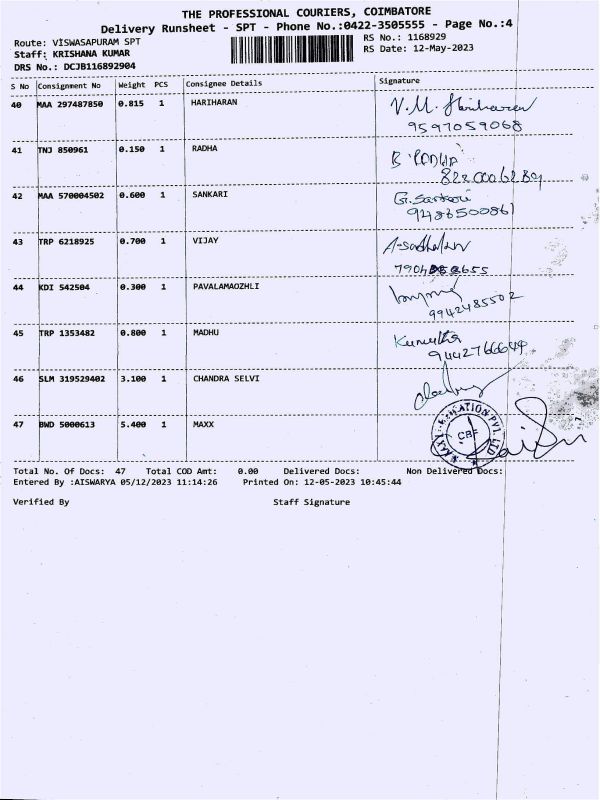 THE PROFESSIONAL COURIERS, COIMBATORE
Delivery Runsheet - SPT - Phone No.:0422-3505555 - Page No.:4
Route: VISWASAPURAM SPT
RS No.: 1168929
Staff: KRISHANA KUMAR
RS Date: 12-May-2023
DRS No.: DCJB116892904
S No Consignment No Weight PCS Consignee Details Signature
40 MAA 297487850 0.815 1 HARIHARAN V.M. Hariharan
9597059068
41 TNJ 850961 0.150 1 RADHA B RADHA
8220006289
42 MAA 570004502 0.600 1 SANKARI G. Sankari
9486500861
43 TRP 6218925 0.700 1 VIJAY
44 KDI 542504 0.300 1 PAVALAMAOZHLI
9942485502
45 TRP 1353482 0.800 1 MADHU
9442766649
46 SLM 319529402 3.100 1 CHANDRA SELVI
47 BWD 5000613 5.400 1 MAXX CBE
Total No. Of Docs: 47 Total COD Amt: 0.00 Delivered Docs: Non Delivered Docs:
Entered By :AISWARYA 05/12/2023 11:14:26 Printed On: 12-05-2023 10:45:44
Verified By Staff Signature